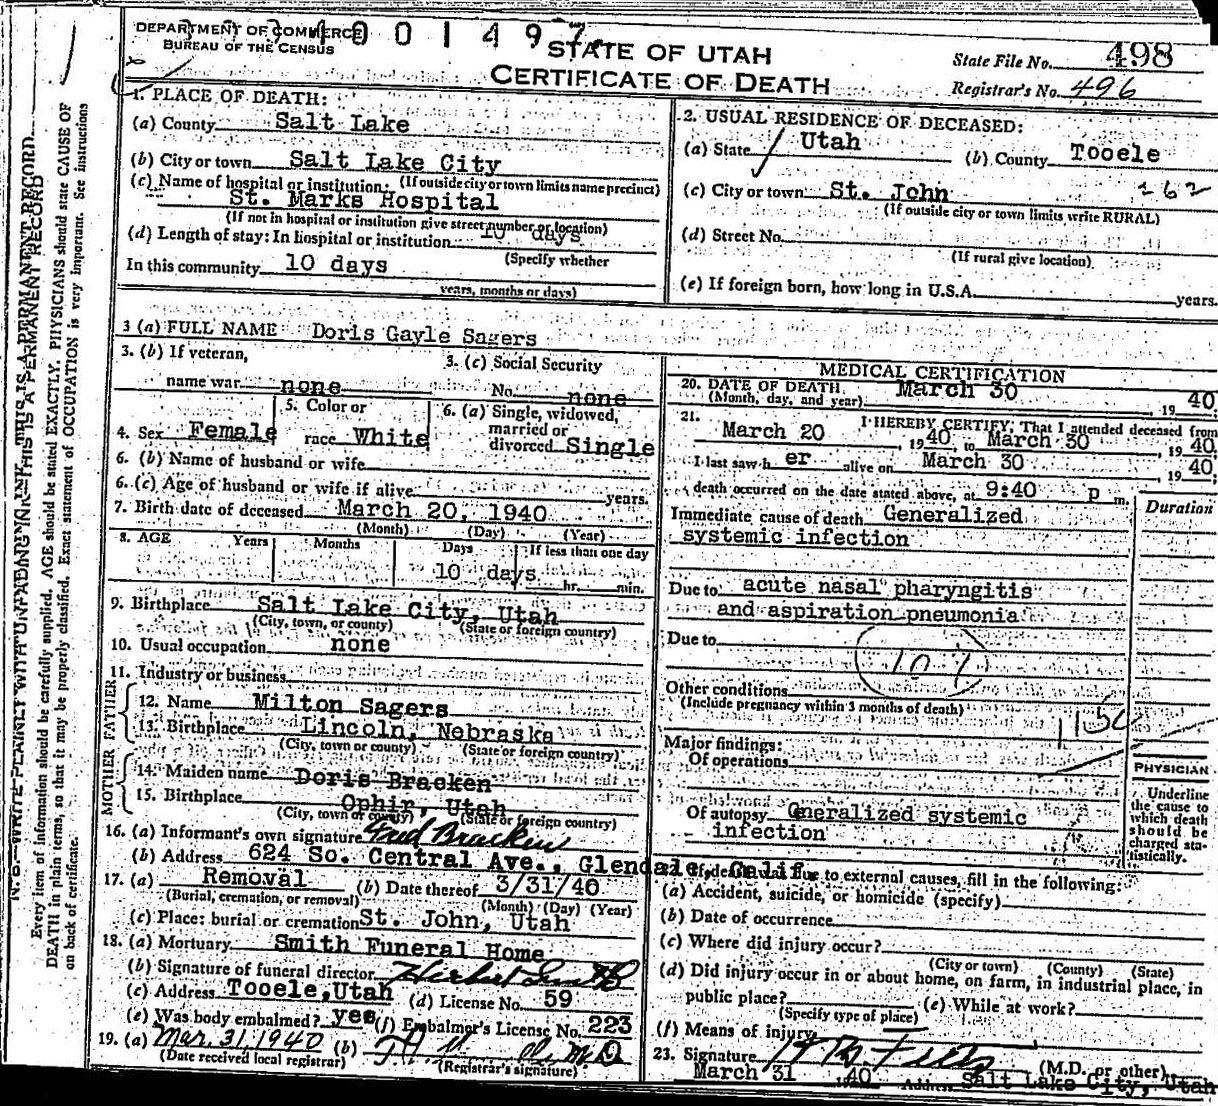 DEPARTMENT OF COMMERCE
BUREAU OF THE CENSUS
STATE OF UTAH
CERTIFICATE OF DEATH
State File No. 498
Registrar's No. 496
1. PLACE OF DEATH:
(a) County Salt Lake
(b) City or town Salt Lake City
(If outside city or town limits name precinct)
(c) Name of hospital or institution:
St. Marks Hospital
(If not in hospital or institution give street number or location)
(d) Length of stay: In hospital or institution 10 days
(Specify whether
In this community 10 days
years, months or days)
2. USUAL RESIDENCE OF DECEASED:
(a) State Utah (b) County Tooele
(c) City or town St. John 262
(If outside city or town limits write RURAL)
(d) Street No.
(If rural give location)
(e) If foreign born, how long in U.S.A. years.
3 (a) FULL NAME Doris Gayle Sagers
3. (b) If veteran, name war none
3. (c) Social Security No. none
4. Sex Female
5. Color or race White
6. (a) Single, widowed, married or divorced Single
6. (b) Name of husband or wife
6. (c) Age of husband or wife if alive years.
7. Birth date of deceased March 20, 1940
(Month) (Day) (Year)
8. AGE Years Months Days If less than one day
10 days hr. min.
9. Birthplace Salt Lake City, Utah
(City, town, or county) (State or foreign country)
10. Usual occupation none
11. Industry or business
FATHER
12. Name Milton Sagers
13. Birthplace Lincoln, Nebraska
(City, town or county) (State or foreign country)
MOTHER
14. Maiden name Doris Bracken
15. Birthplace Ophir, Utah
(City, town or county) (State or foreign country)
16. (a) Informant's own signature Fred Bracken
(b) Address 624 So. Central Ave., Glendale, Calif.
17. (a) Removal (b) Date thereof 3/31/40
(Burial, cremation, or removal) (Month) (Day) (Year)
(c) Place: burial or cremation St. John, Utah
18. (a) Mortuary Smith Funeral Home
(b) Signature of funeral director
(c) Address Tooele, Utah (d) License No. 59
(e) Was body embalmed? yes (f) Embalmer's License No. 223
19. (a) Mar. 31, 1940 (b)
(Date received local registrar) (Registrar's signature)
MEDICAL CERTIFICATION
20. DATE OF DEATH March 30, 19 40
(Month, day, and year)
21. I HEREBY CERTIFY, That I attended deceased from
March 20, 19 40, to March 30, 19 40
I last saw h er alive on March 30, 19 40;
death occurred on the date stated above, at 9:40 p m.
Duration
Immediate cause of death Generalized
systemic infection
Due to acute nasal pharyngitis
and aspiration pneumonia
Due to
107
Other conditions
(Include pregnancy within 3 months of death)
Major findings:
Of operations
Of autopsy Generalized systemic
infection
PHYSICIAN
Underline
the cause to
which death
should be
charged sta-
tistically.
22. If death was due to external causes, fill in the following:
(a) Accident, suicide, or homicide (specify)
(b) Date of occurrence
(c) Where did injury occur?
(City or town) (County) (State)
(d) Did injury occur in or about home, on farm, in industrial place, in
public place? (e) While at work?
(Specify type of place)
(f) Means of injury
23. Signature
(M.D. or other)
March 31 1940 Address Salt Lake City, Utah
N. B.—WRITE PLAINLY WITH UNFADING INK—THIS IS A PERMANENT RECORD
Every item of information should be carefully supplied. AGE should be stated EXACTLY. PHYSICIANS should state CAUSE OF
DEATH in plain terms, so that it may be properly classified. Exact statement of OCCUPATION is very important. See instructions
on back of certificate.